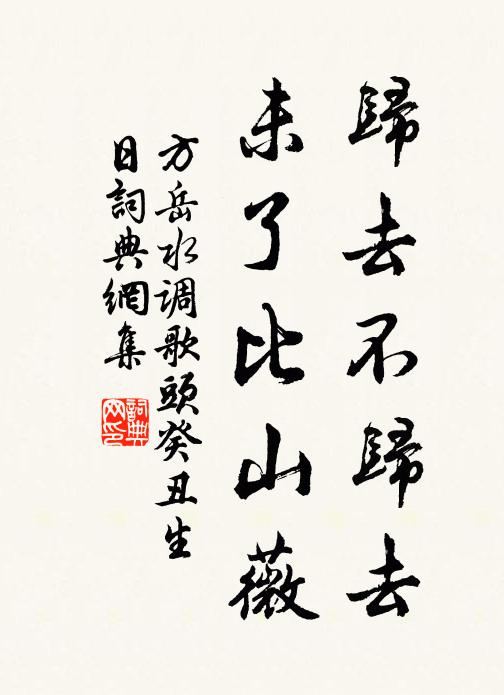 歸去不歸去
未了比山薇
方岳水调歌頭癸丑生
日詞典網集
詞典网印